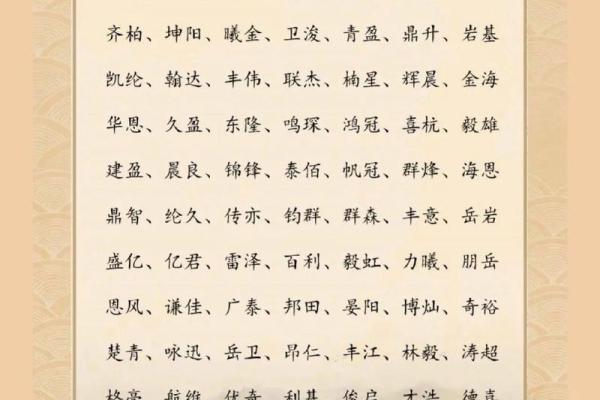 齐柏、坤阳、曦金、卫浚、青盈、鼎升、岩基
凯纶、翰达、丰伟、联杰、楠星、辉晨、金海
华恩、久盈、东隆、鸣琛、鸿冠、喜杭、毅雄
建盈、晨良、锦锋、泰佰、帆冠、群烽、海恩
鼎智、纶久、传亦、钧群、群森、丰意、岳岩
盛亿、亿君、雷泽、百利、毅虹、力曦、朋岳
恩风、谦佳、广泰、邦田、晏阳、博灿、奇裕
楚青、咏迅、岳卫、昂仁、丰江、林毅、涛超
格亮、航维、优奇、利基、俊启、才浩、德嘉